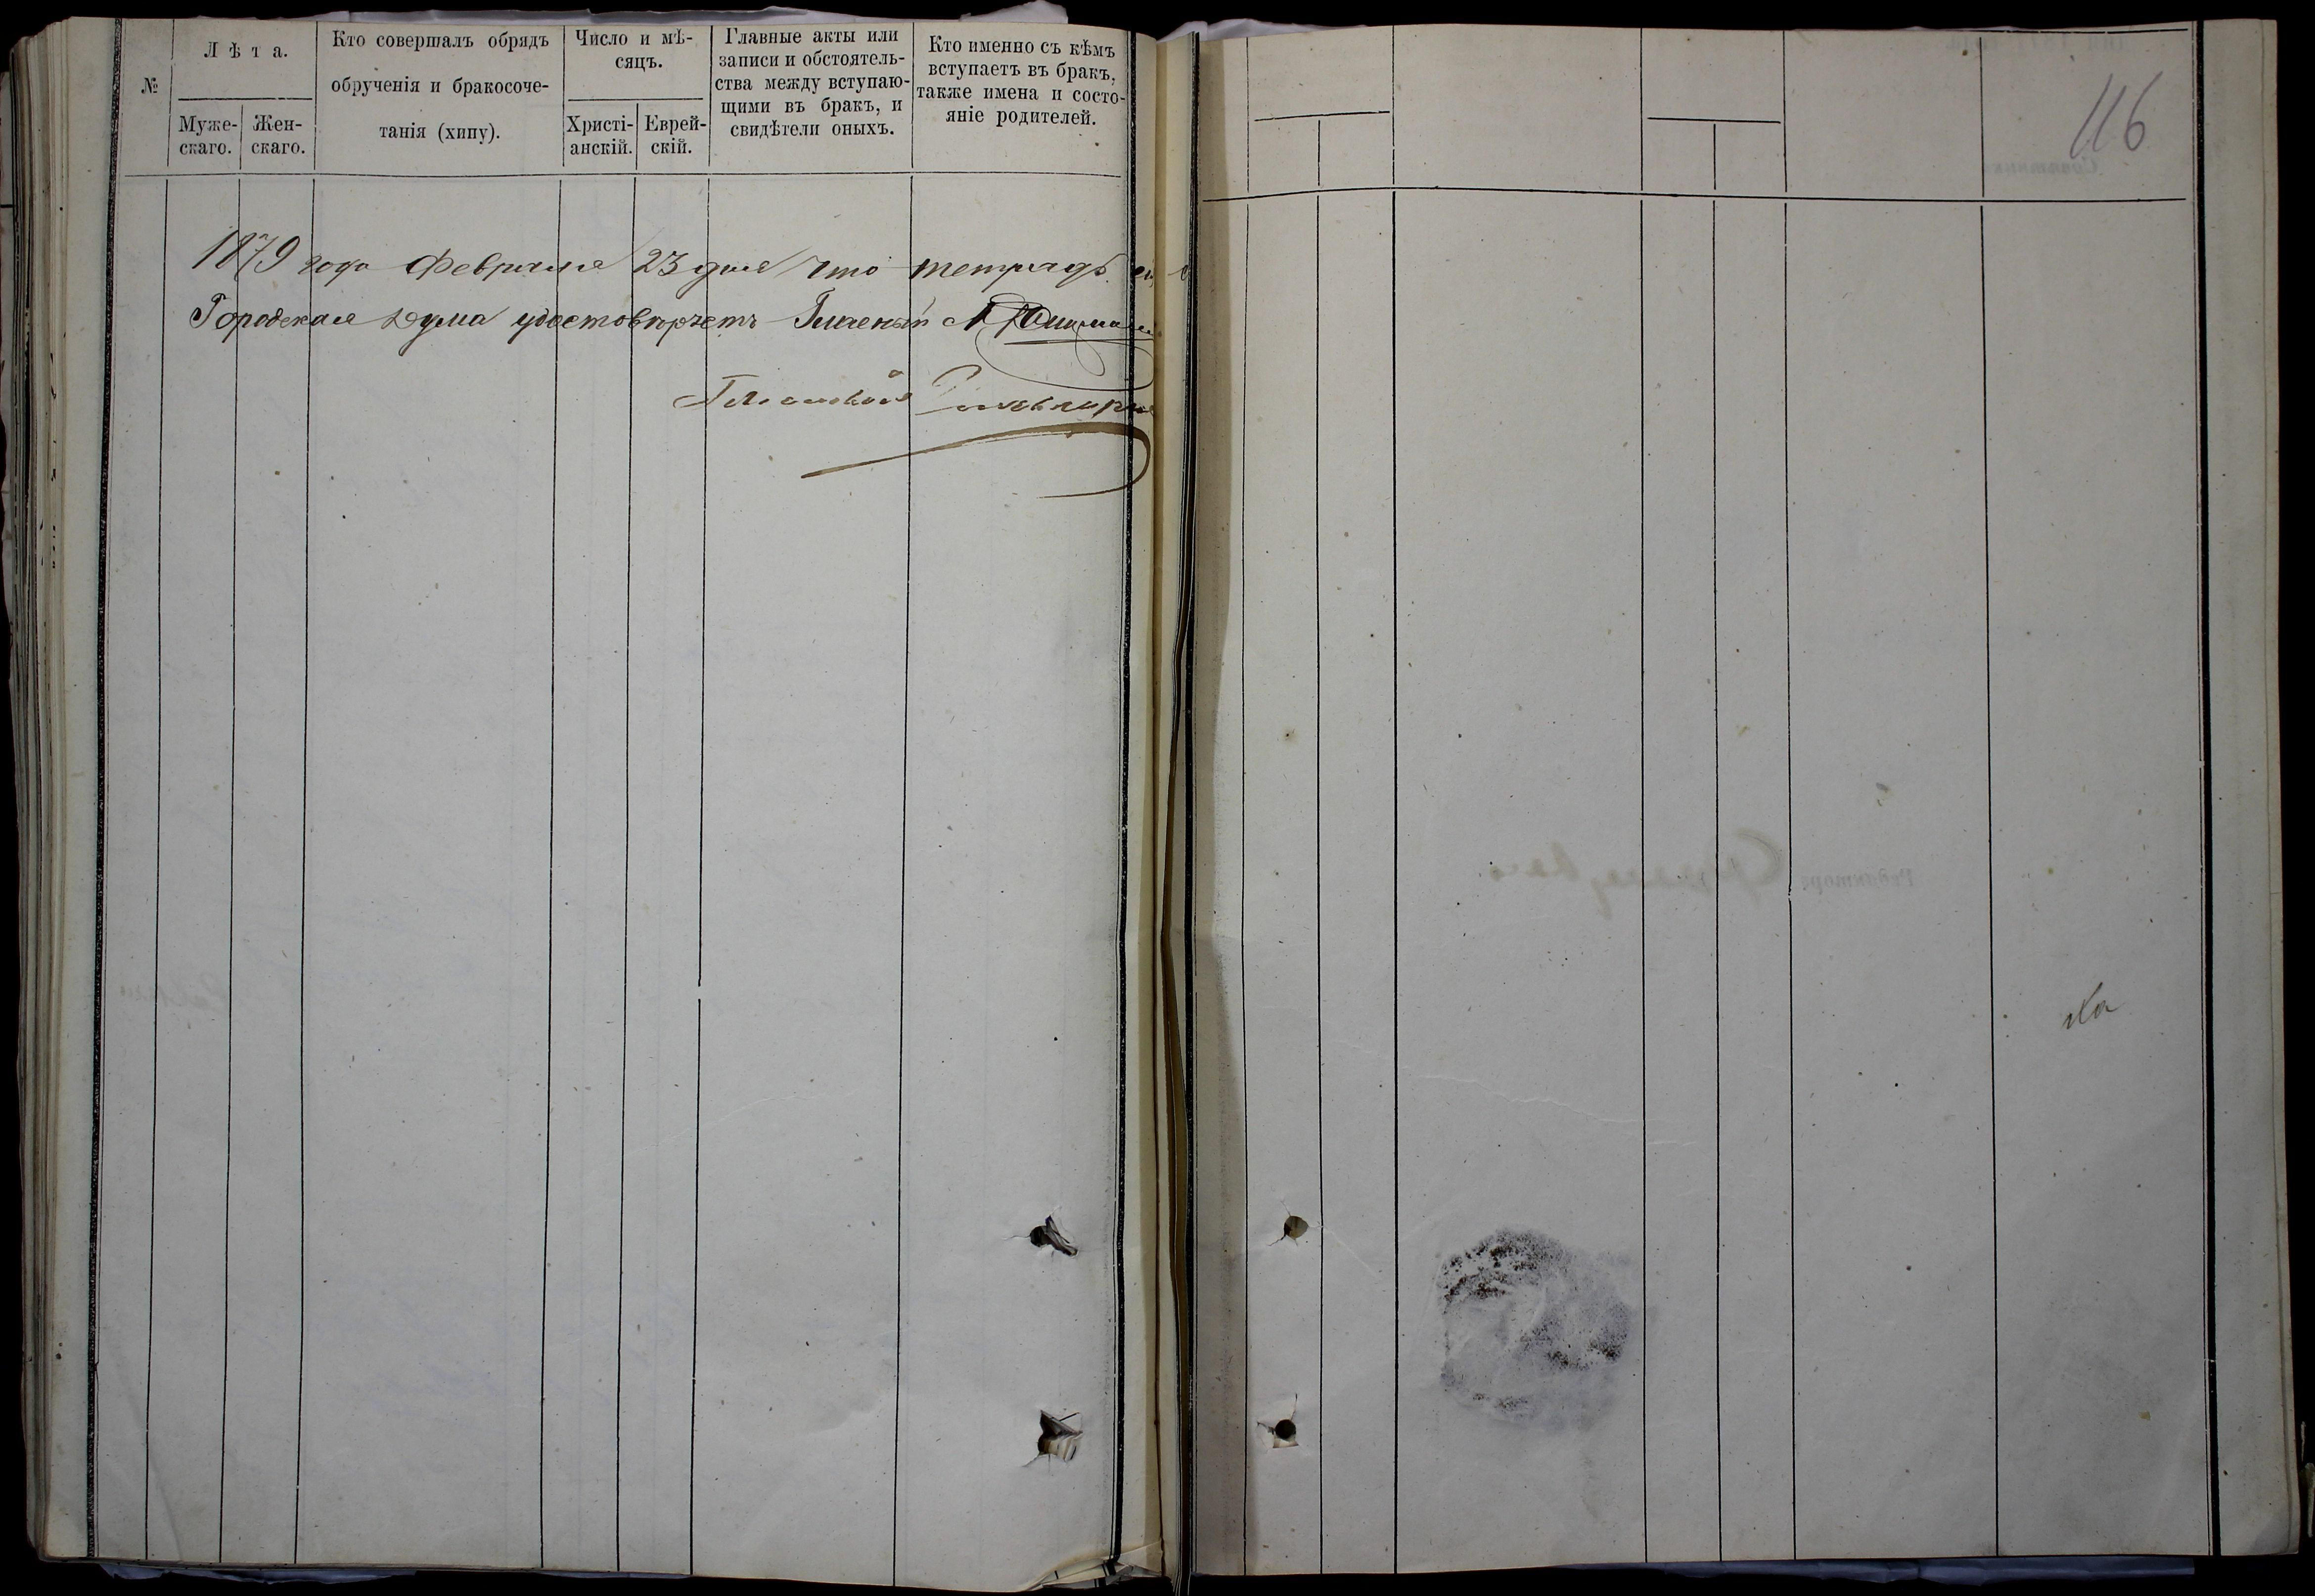 №
Лѣта.
Муже-
скаго.
Жен-
скаго.
Кто совершалъ обрядъ
обрученія и бракосоче-
танія (хипу).
Число и мѣ-
сяцъ.
Христі-
анскій.
Еврей-
скій.
Главные акты или
записи и обстоятель-
ства между вступаю-
щими въ бракъ, и
свидѣтели оныхъ.
Кто именно съ кѣмъ
вступаетъ въ бракъ,
также имена и состо-
яніе родителей.
1879 года Февраля 23 дня что тетрадь
Городская Дума удостовѣряетъ Гласный
116
на